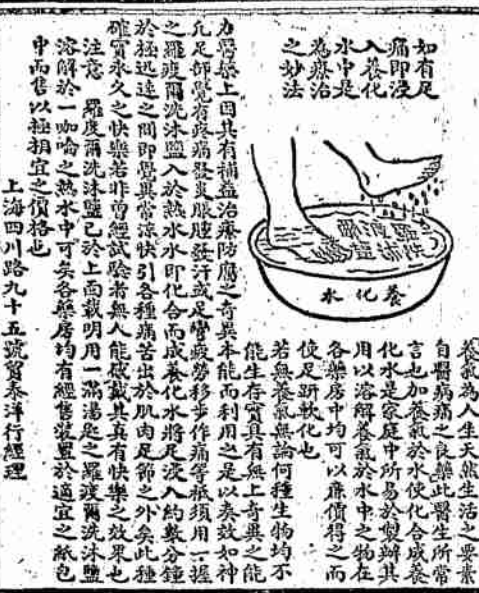 如有足
痛即浸
入養化
水中是
為療治
之妙法
養化水
養氣為人生天然生活之要素
自醫病痛之良藥此醫生所常
言也加養氣於水使化合成養
化水是家庭中所易於製辦其
用以溶解養氣於水中之物在
各藥房中均可以廉價得之而
使足趼軟化也
若無養氣無論何種生物均不
能生存實具有無上奇異之能
力醫藥上因其有補益治療防腐之奇異本能而利用之是以奏效如神
凡足部覺有疼痛發炎脹腫發汗或足彎疲勞移步作痛等祇須用一握
之羅度爾洗沐鹽入於熱水水即化合而成養化水將足浸入約數分鐘
於極迅速之間即覺異常涼快引各種痛苦出於肌肉足節之外矣此種
確實永久之快樂若非曾經試驗者無人能破戲其真有快樂之效果也
注意 羅度爾洗沐鹽已於上面載明用一滿湯匙之羅度爾洗沐鹽
溶解於一咖喻之熱水中可矣各藥房均有經售裝置於適宜之紙包
中而售以極相宜之價格也
上海四川路九十五號貿泰洋行經理